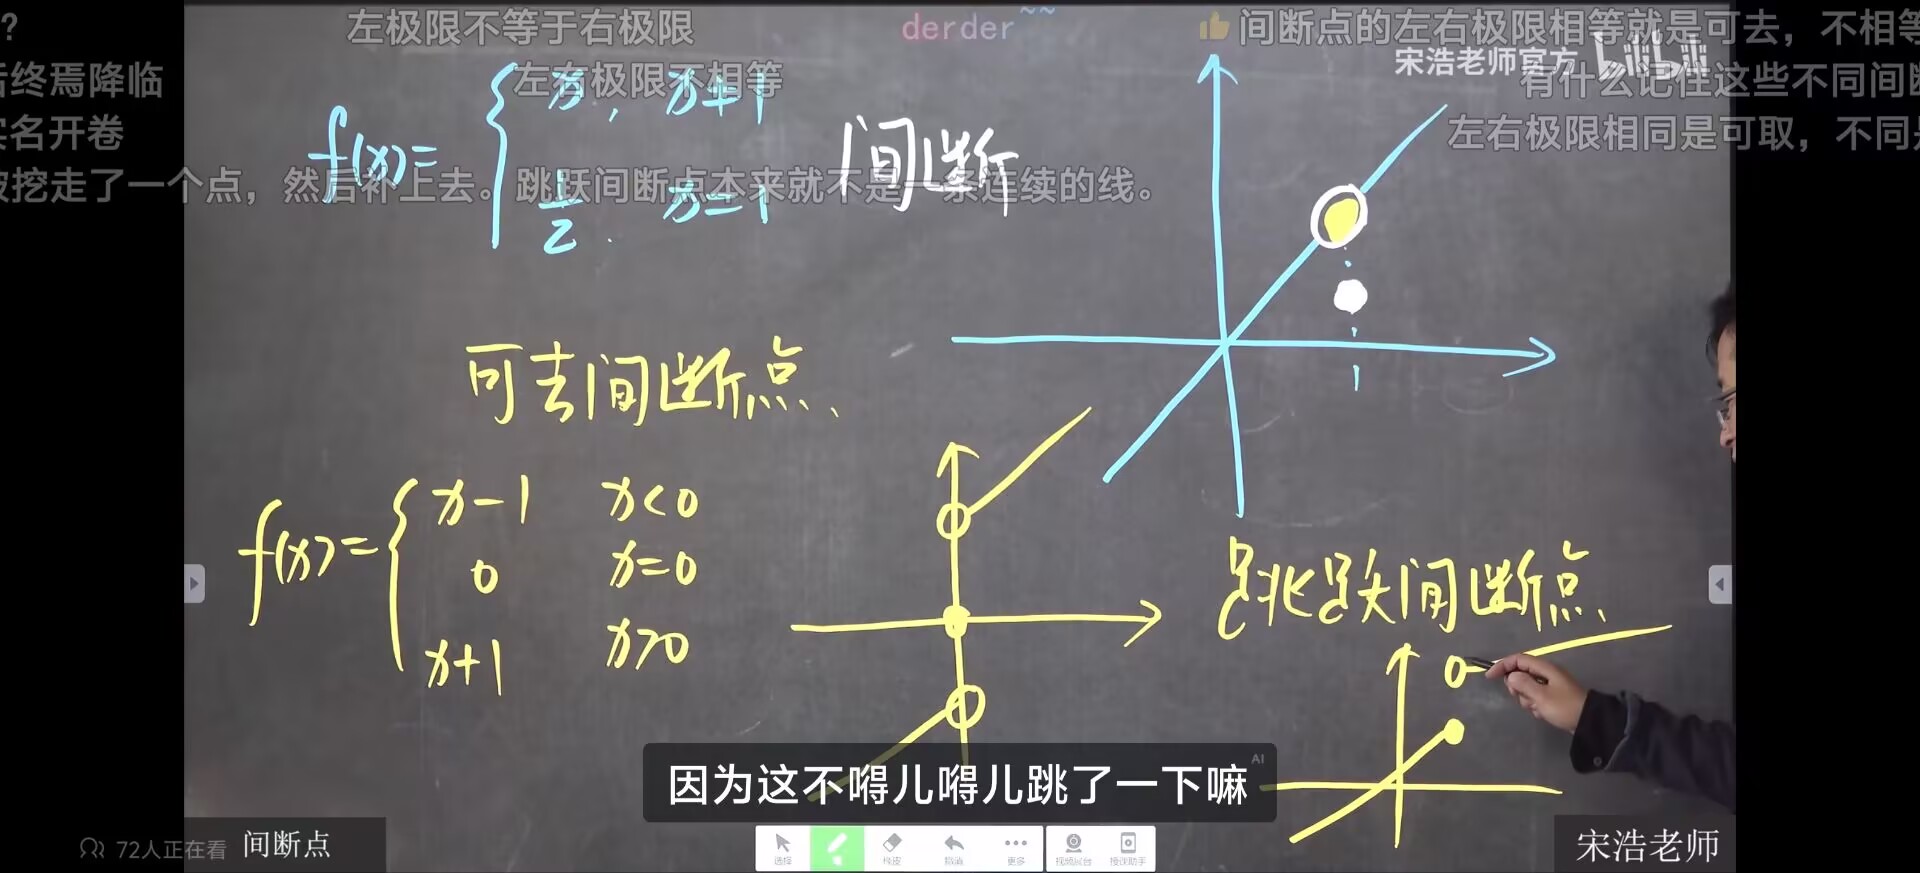 ?
左极限不等于右极限
derder~~
间断点的左右极限相等就是可去，不相等
宋浩老师官方 bilibili
后终焉降临
左右极限不相等
有什么记住这些不同间断
实名开卷
左右极限相同是可取，不同是
被挖走了一个点，然后补上去。跳跃间断点本来就不是一条连续的线。
f(x)=
x, x≠1
1/2. x=1
间断
1
可去间断点、
f(x)=
x-1 x<0
0 x=0
x+1 x>0
跳跃间断点、
因为这不嘚儿嘚儿跳了一下嘛
AI
72人正在看
间断点
选择
橡皮
撤消
更多
视频展台
授课助手
宋浩老师